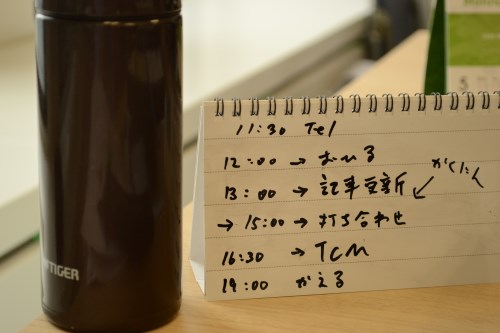 11:30 Tel
12:00 → おひる
かくにん
13:00 → 記事更新
→ 15:00 → 打ち合わせ
16:30 → TCM
19:00 かえる
TIGER